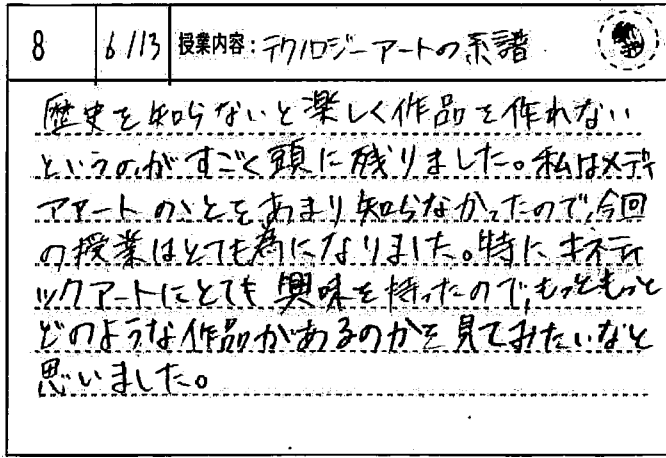 8 6/13 授業内容：テクノロジーアートの系譜
歴史を知らないと楽しく作品を作れない
というのがすごく頭に残りました。私はメディ
アアートのことをあまり知らなかったので、今回
の授業はとても為になりました。特にキネティ
ックアートにとても興味を持ったので、もっともっと
どのような作品があるのかを見てみたいなと
思いました。